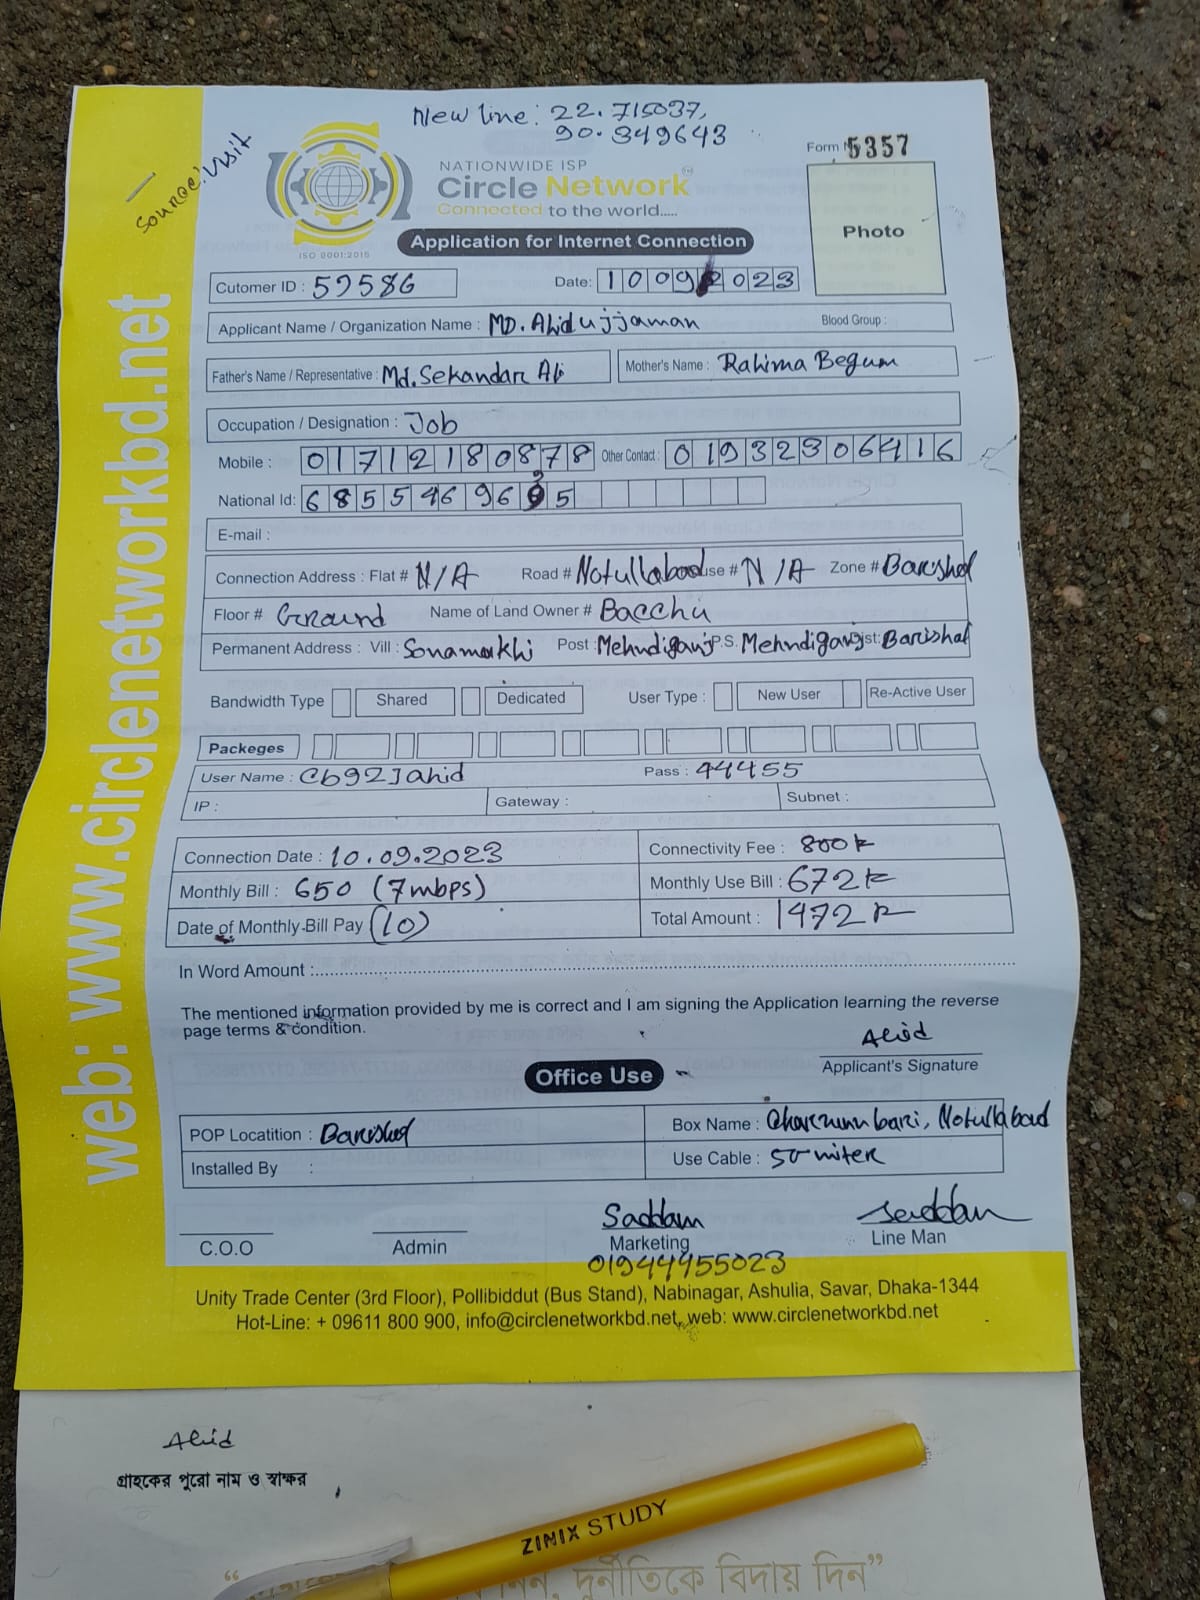 New line: 22.715037,
90.349643
Source: Visit
Form 5357
NATIONWIDE ISP
Circle Network
Connected to the world.....
ISO 9001:2015
Application for Internet Connection
Photo
Cutomer ID : 59586
Date: 10092023
Applicant Name / Organization Name : MD. Ahidujjaman
Blood Group :
Father's Name / Representative : Md. Sekandar Ali
Mother's Name : Rahima Begum
Occupation / Designation : Job
Mobile : 01712180878 Other Contact : 01932306416
National Id: 6855469695
E-mail :
Connection Address : Flat # N/A Road # Notullabad use # N/A Zone # Barishal
Floor # Ground Name of Land Owner # Bacchu
Permanent Address : Vill : Sonamukhi Post : Mehndiganj P.S. Mehndiganj Dist: Barishal
Bandwidth Type Shared Dedicated User Type : New User Re-Active User
Packeges
User Name : Cb92Jahid Pass : 44455
IP : Gateway : Subnet :
Connection Date : 10.09.2023 Connectivity Fee : 800tk
Monthly Bill : 650 (7mbps) Monthly Use Bill : 672tk
Date of Monthly-Bill Pay (10) Total Amount : 1472tk
In Word Amount :
The mentioned information provided by me is correct and I am signing the Application learning the reverse
page terms & condition.
Ahid
Applicant's Signature
Office Use
POP Locatition : Barishal Box Name : bari, Notullabad
Installed By : Use Cable : 50 miter
C.O.O
Admin
Saddam
Marketing
01944455023
Saddam
Line Man
Unity Trade Center (3rd Floor), Pollibiddut (Bus Stand), Nabinagar, Ashulia, Savar, Dhaka-1344
Hot-Line: + 09611 800 900, info@circlenetworkbd.net, web: www.circlenetworkbd.net
web: www.circlenetworkbd.net
Ahid
গ্রাহকের পুরো নাম ও স্বাক্ষর
ZINIX STUDY
দুর্নীতিকে বিদায় দিন”